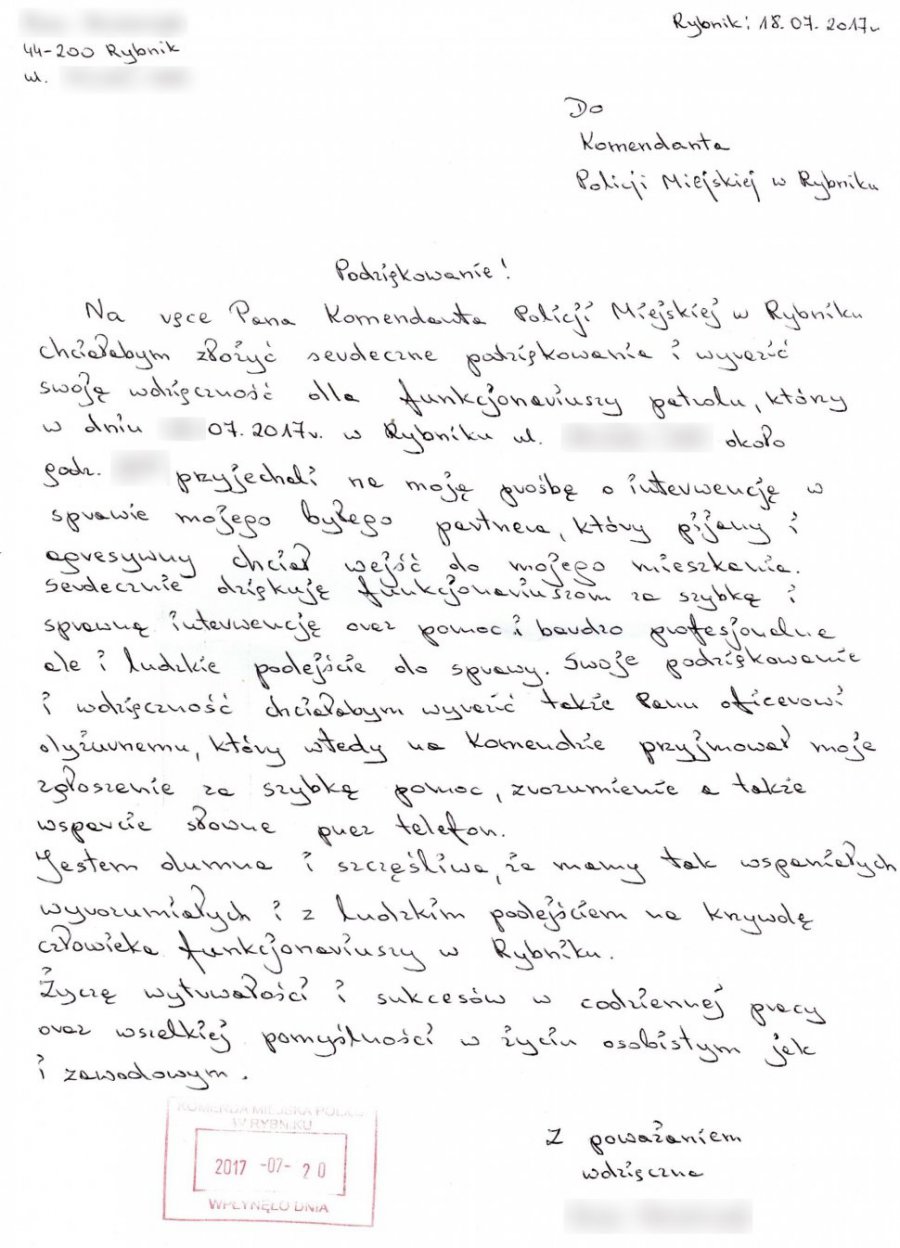 Rybnik: 18.07.2017r
44-200 Rybnik
ul.
Do
Komendanta
Policji Miejskiej w Rybniku
Podziękowanie!
Na ręce Pana Komendanta Policji Miejskiej w Rybniku
chciałabym złożyć serdeczne podziękowania i wyrazić
swoją wdzięczność dla funkcjonariuszy patrolu, którzy
w dniu 07.2017r. w Rybniku ul. około
godz. przyjechali na moją prośbę o interwencję w
sprawie mojego byłego partnera, który pijany i
agresywny chciał wejść do mojego mieszkania.
Serdecznie dziękuję funkcjonariuszom za szybką i
sprawną interwencję oraz pomoc i bardzo profesjonalne
ale i ludzkie podejście do sprawy. Swoje podziękowanie
i wdzięczność chciałabym wyrazić także Panu oficerowi
dyżurnemu, który wtedy na Komendzie przyjmował moje
zgłoszenie za szybką pomoc, zrozumienie a także
wsparcie słowne przez telefon.
Jestem dumna i szczęśliwa, że mamy tak wspaniałych
wyrozumiałych i z ludzkim podejściem na krzywdę
człowieka funkcjonariuszy w Rybniku.
Życzę wytrwałości i sukcesów w codziennej pracy
oraz wszelkiej pomyślności w życiu osobistym jak
i zawodowym.
Z poważaniem
wdzięczna
KOMENDA MIEJSKA POLICJI
W RYBNIKU
2017 -07- 20
WPŁYNĘŁO DNIA